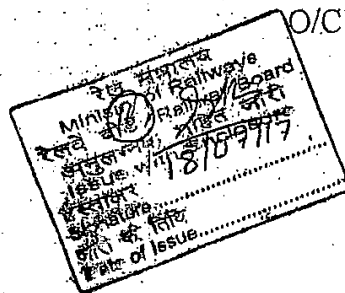 O/C
रेल मंत्रालय
Ministry of Railways
रेलवे बोर्ड / Railway Board
अनुलग्नक सहित जारी
Issue with
18/09/17
हस्ताक्षर
Signature..................
जारी की तिथि
Date of Issue..................